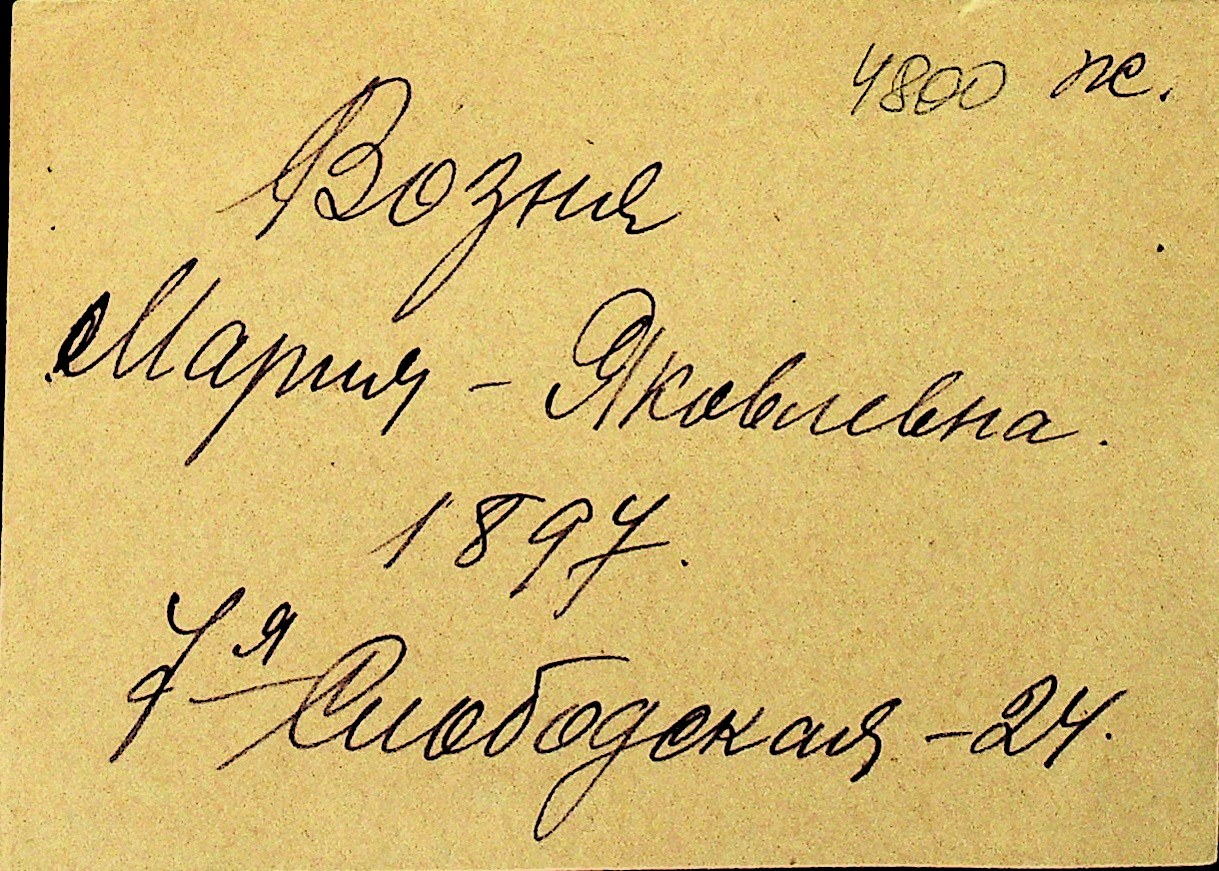 4800 ж.
Возня
Мария - Яковлевна.
1897.
7-я Слободская - 24.